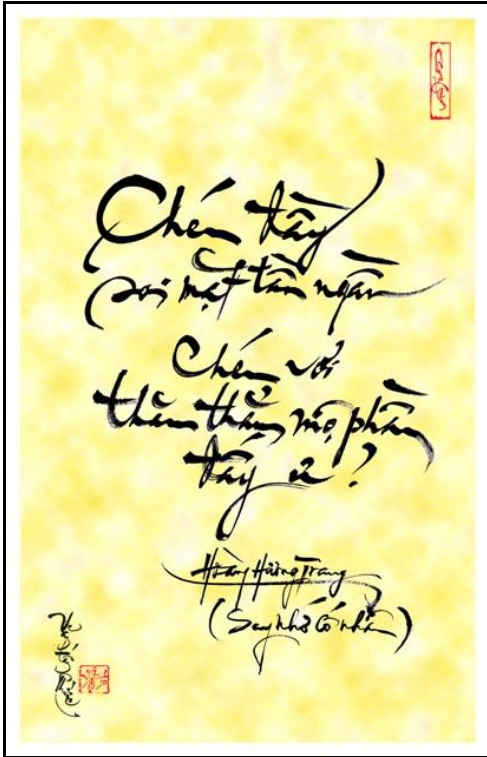 Chén đầy
soi mặt tần ngần
Chén vơi
thăm thẳm mộ phần
đấy ư?
Hoàng Hương Trang
(Say nhớ cố nhân)